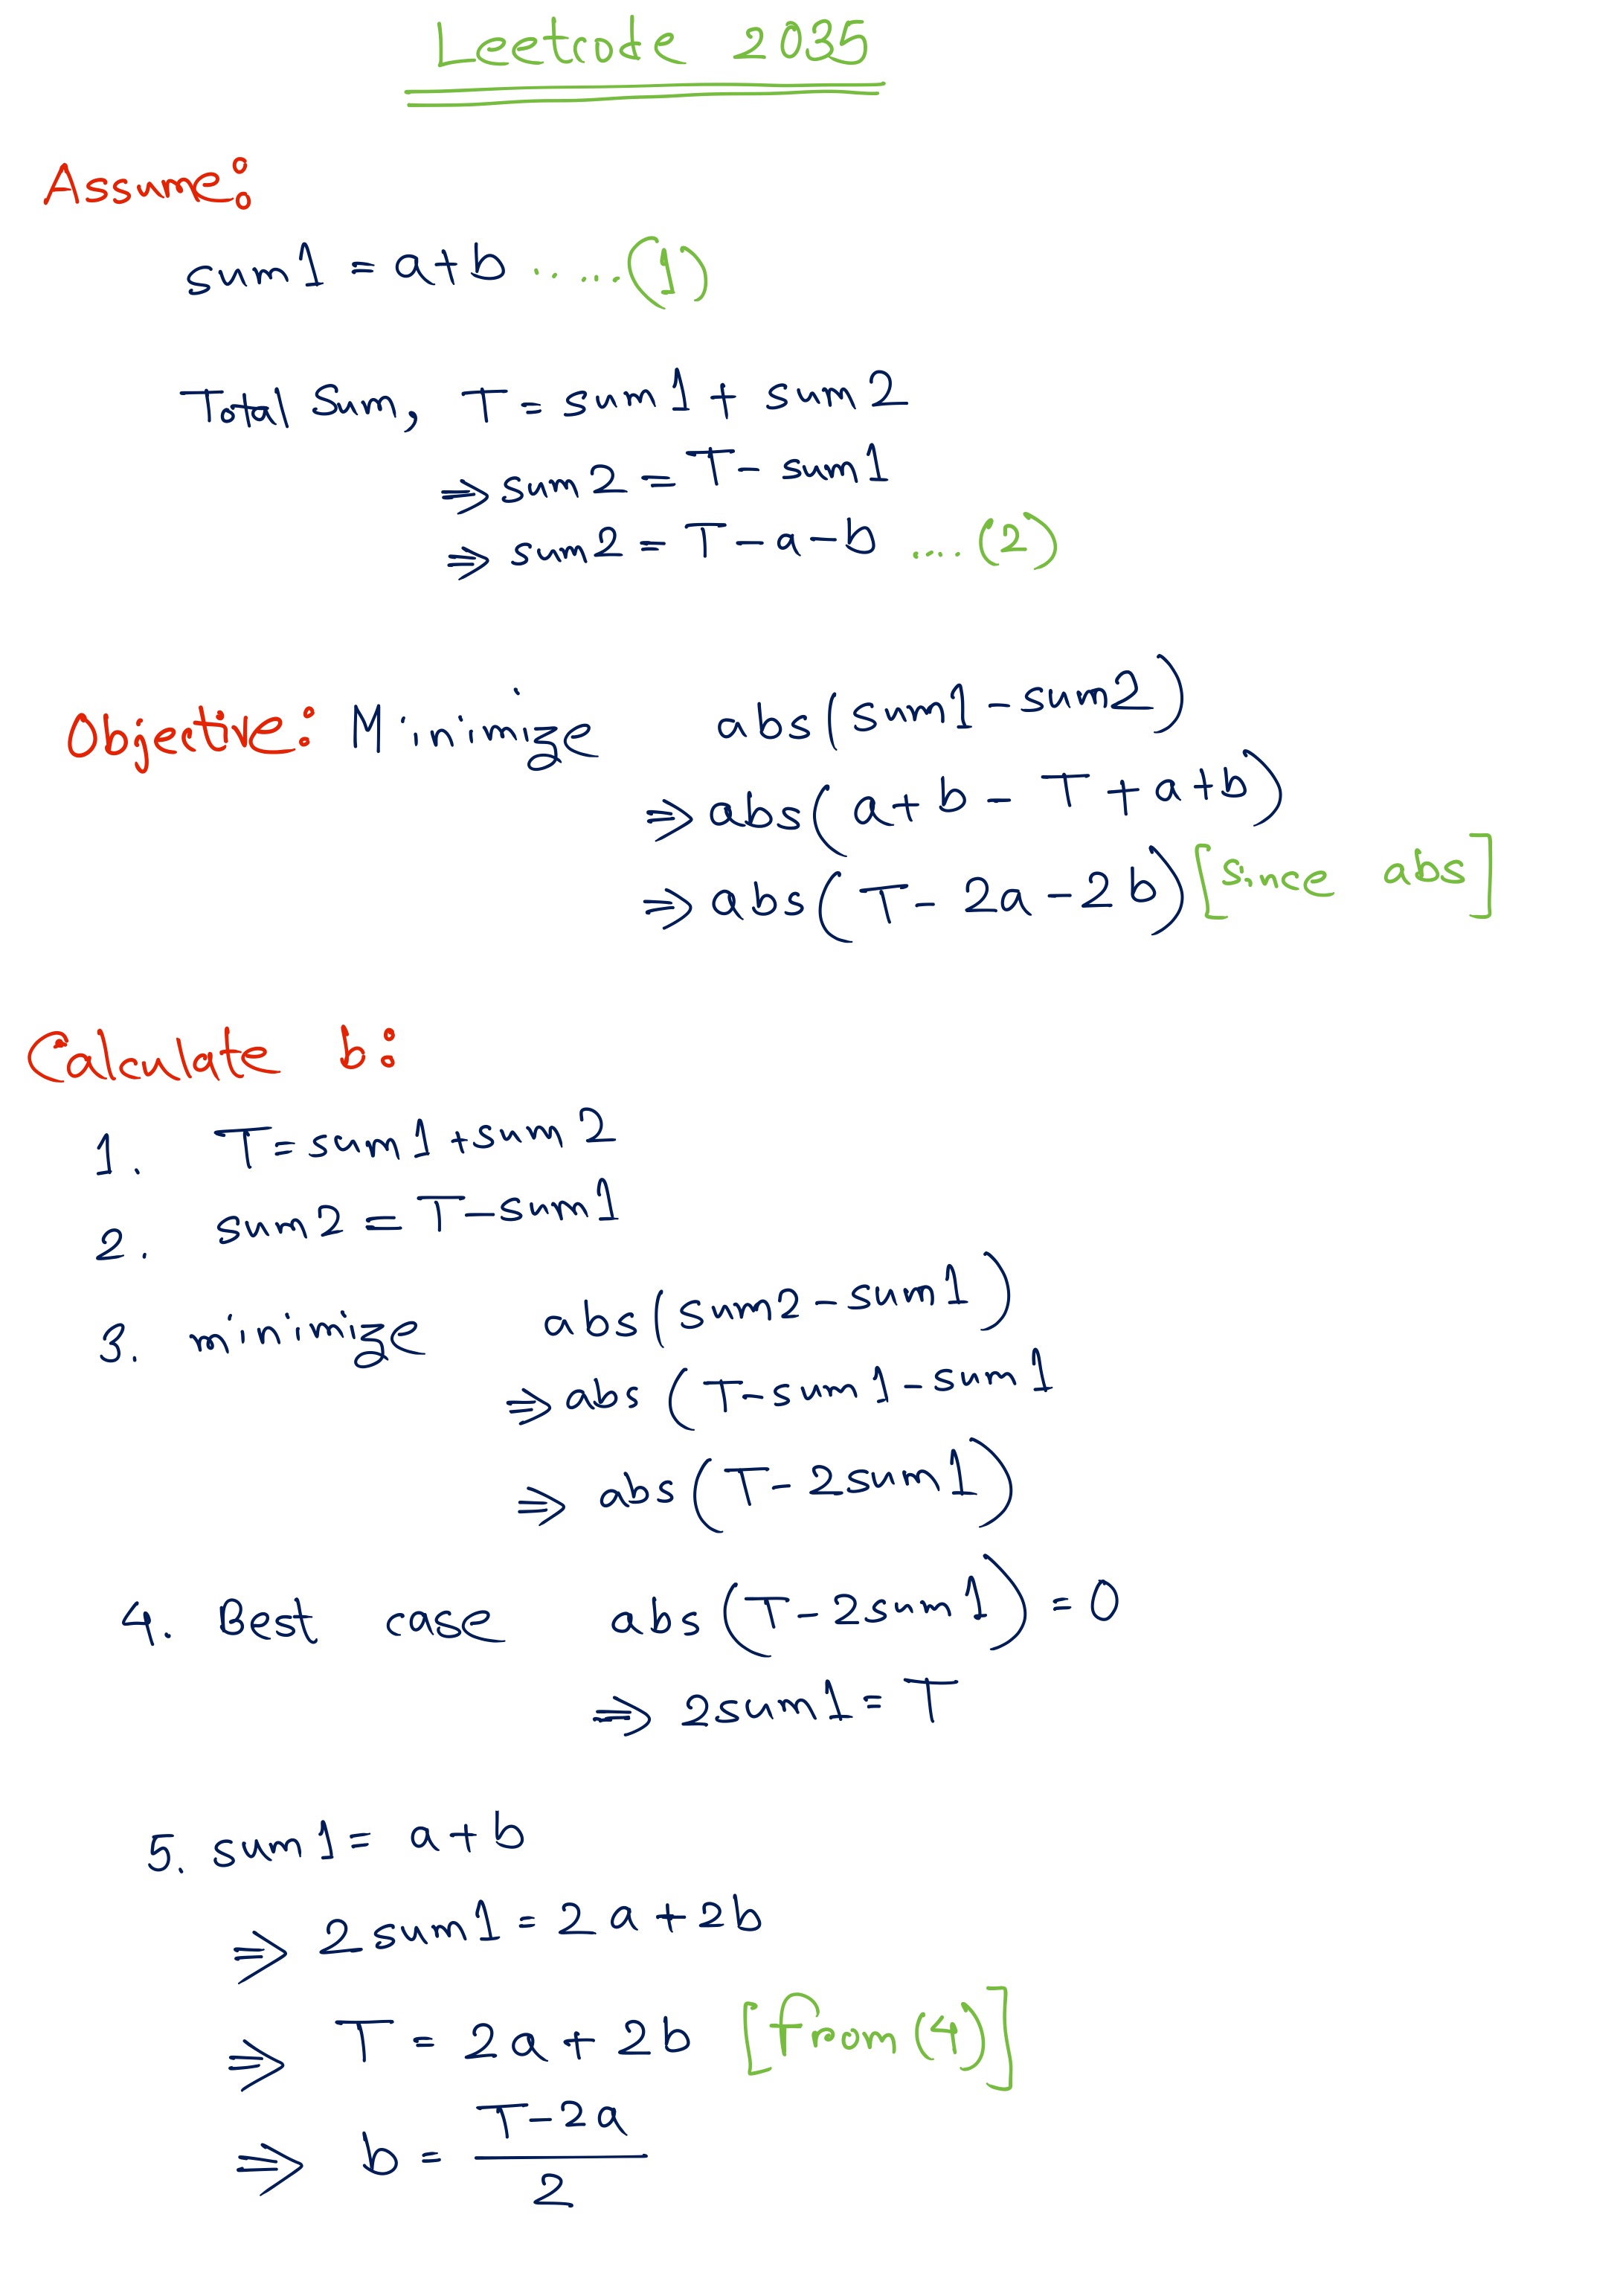 Leetcode 2035
Assume:
sum1 = a+b ......(1)
Total Sum, T = sum1 + sum2
⇒ sum2 = T - sum1
⇒ sum2 = T - a - b ....(2)
Objective: Minimize abs(sum1 - sum2)
⇒ abs(a+b - T + a+b)
⇒ abs(T - 2a - 2b) [since abs]
Calculate b:
1. T = sum1 + sum2
2. sum2 = T - sum1
3. minimize abs(sum2 - sum1)
⇒ abs(T - sum1 - sum1
⇒ abs(T - 2sum1)
4. Best case abs(T - 2sum1) = 0
⇒ 2sum1 = T
5. sum1 = a+b
⇒ 2sum1 = 2a+2b
⇒ T = 2a + 2b [from (4)]
⇒ b = T-2a
2